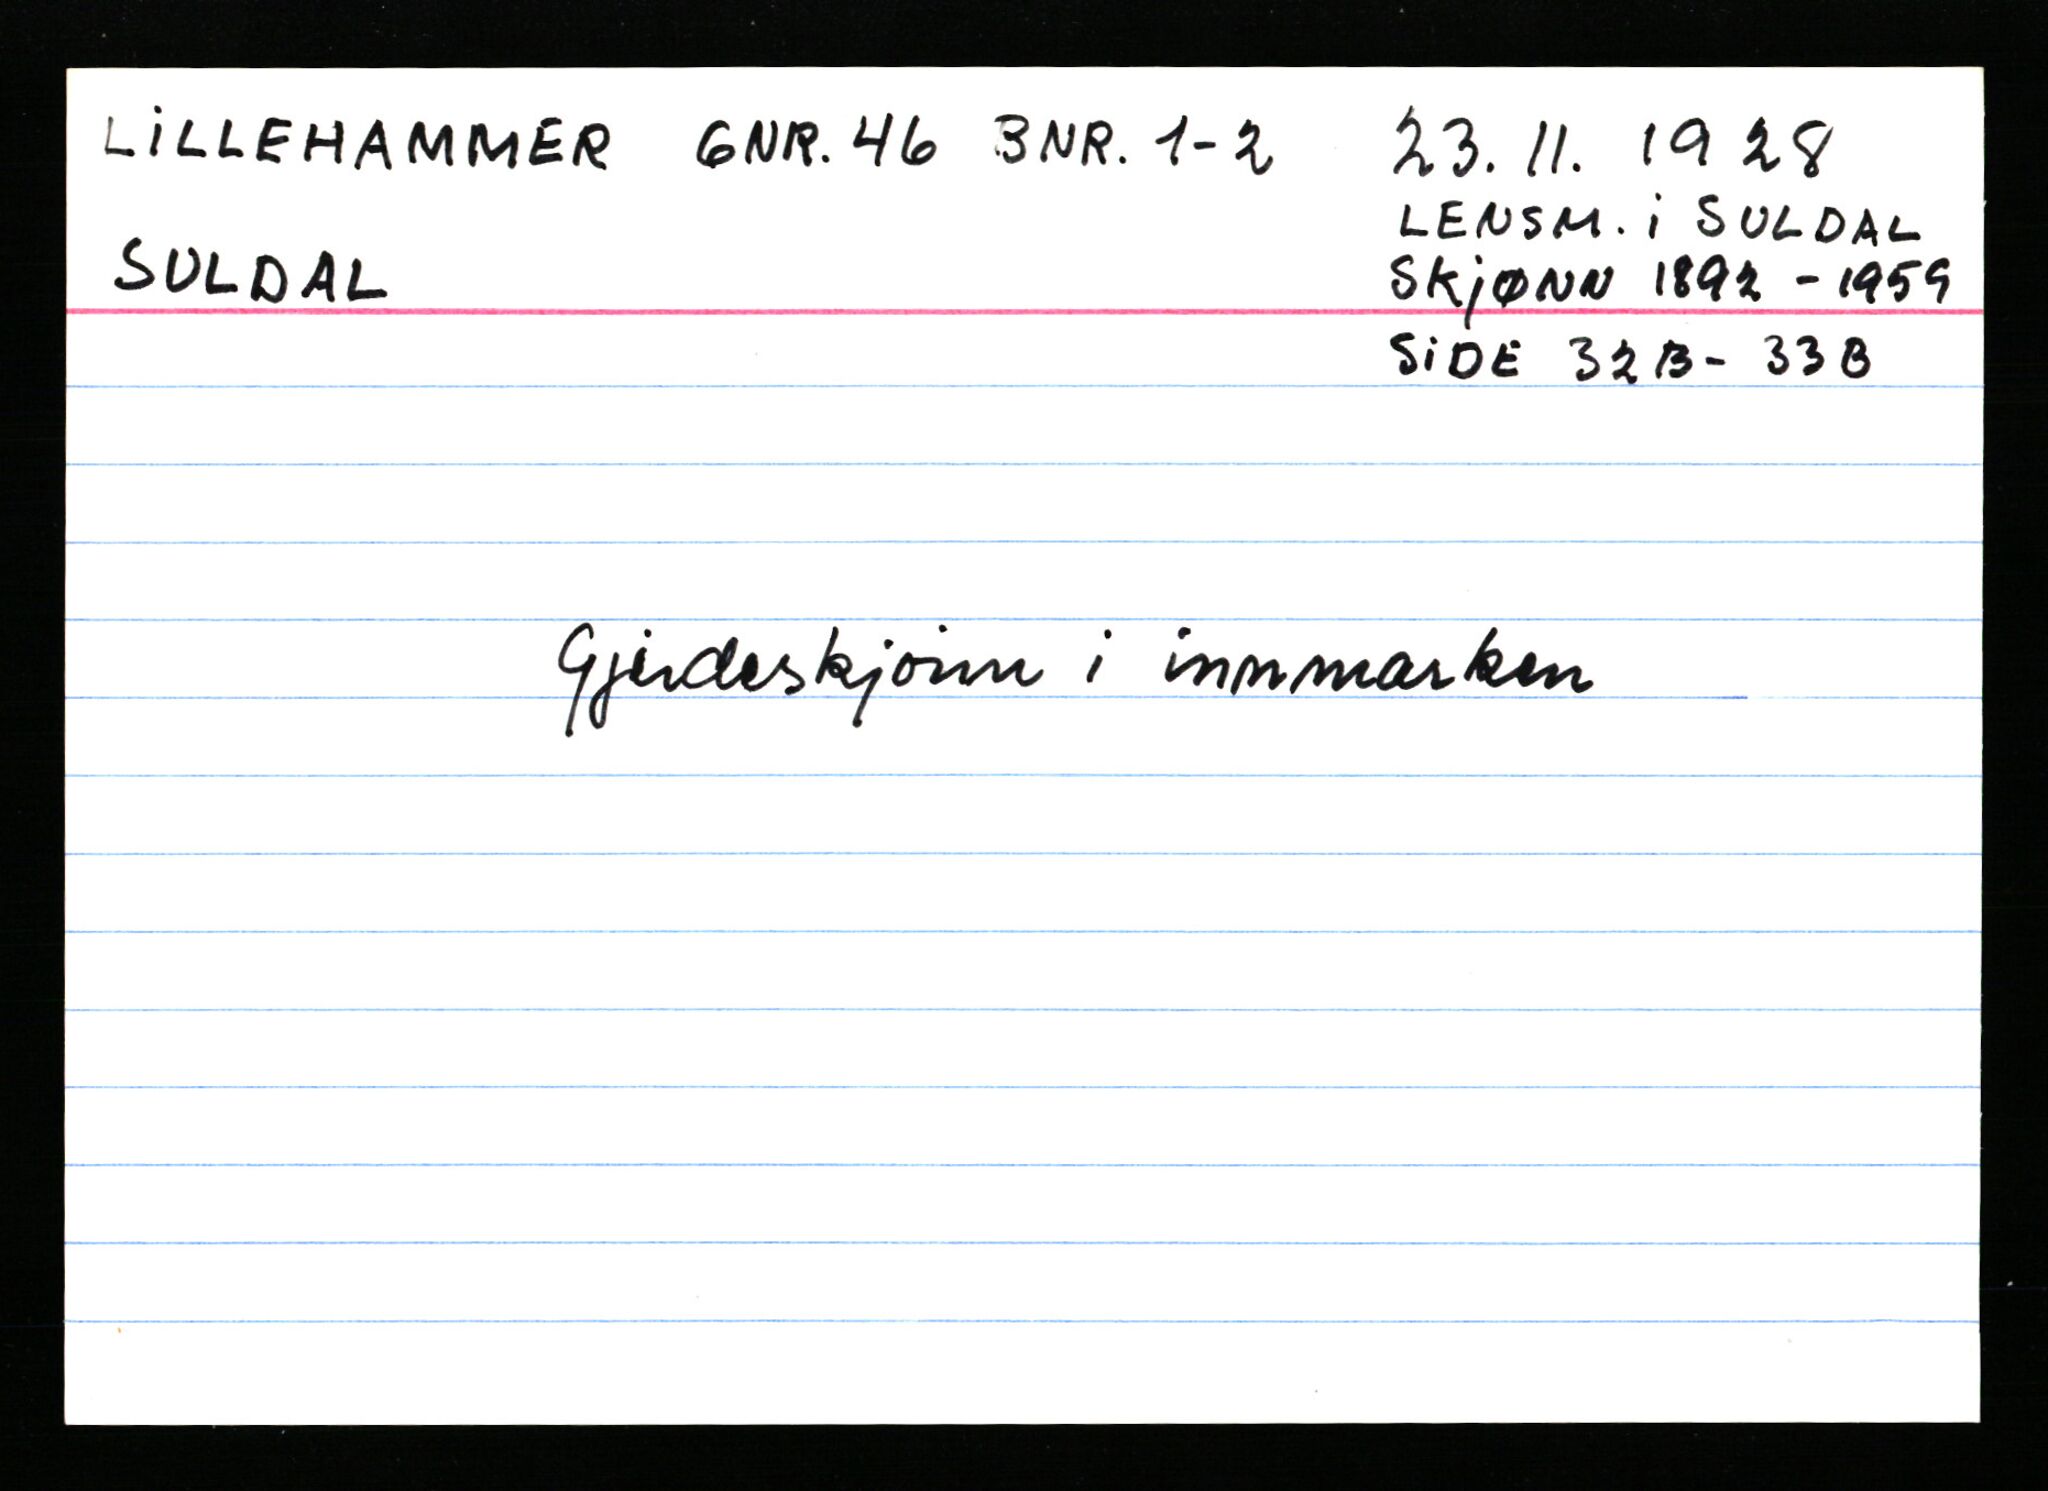 LiLLEHAMMER GNR. 46 BNR. 1-2 23. 11. 1928
LENSM. i SULDAL
SULDAL SKjØNN 1892 - 1959
SiDE 32B - 33B
Gjerdeskjønn i innmarken